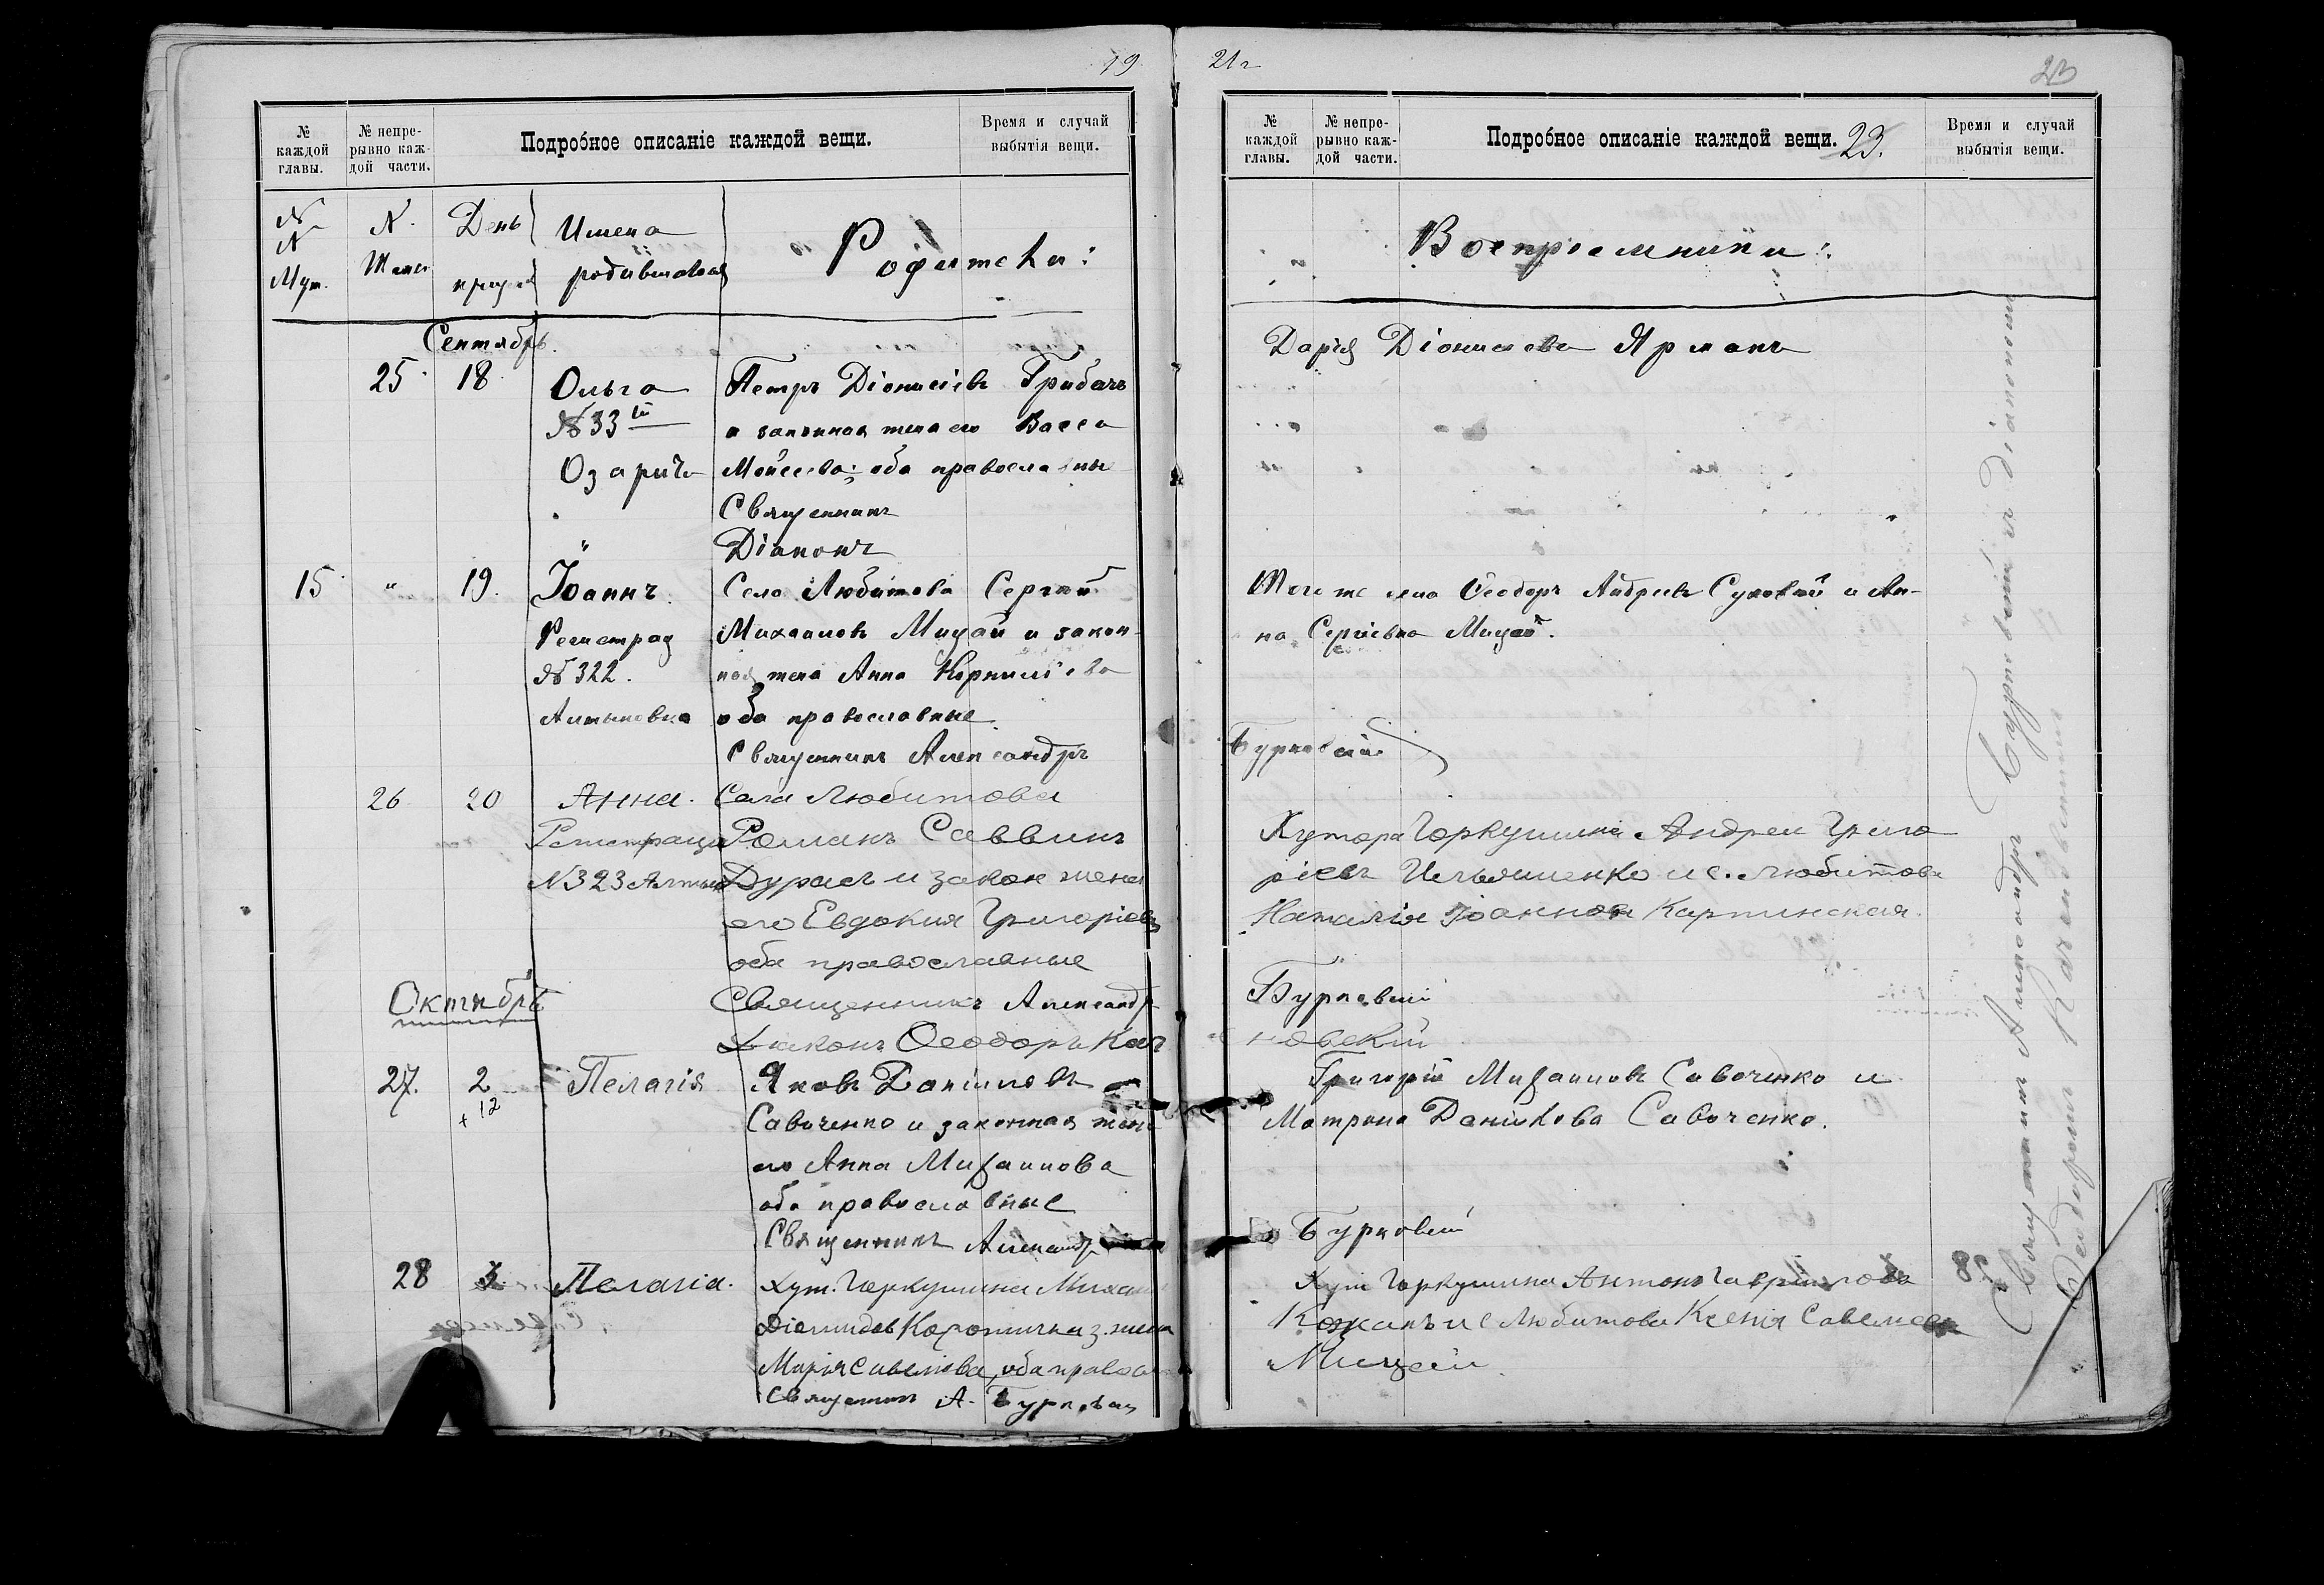 19
№ каждой главы.
№ непрерывно каждой части.
Подробное описаніе каждой вещи.
Время и случай выбытія вещи.
№
№
Муж.
№.
Жен.
День
Имена
родившихся
Родители:
Сентябрь.
25 18 Ольга Петръ Діонисіевъ Грибачъ
№ 33 а законная жена его Васса
Озаричи Моисеева; оба православны
Священникъ
Діаконъ
15 " 19. Іоаннъ. Села Любитова Сергій
Регистрац Михаиловъ Мицай и закон
№ 322. ная жена Анна Корниліева
Алтыновка оба православные
Священникъ Александръ
26 20 Анна. Села Любитова
Регистраци Романъ Саввинъ
№323 и закон жена
его Евдокия Григоріев
оба православные
Октябрь Священникъ Александр
Диаконъ Ѳеодоръ Кач
27. 2 Пелагія Яковъ Даніиловъ
+ 12 Савченко и законная жена
его Анна Михаилова
оба православные
Священникъ Александръ
28 3 Пелагіа. Хут. Гаркушина Михаи
Діомидовъ з. жена
Марія Савелиева, оба правос
Священникъ А. Бурковскі
21 г
23
№ каждой главы.
№ непрерывно каждой части.
Подробное описаніе каждой вещи.
23.
Время и случай выбытія вещи.
Воспріемники:
Дарія Діонисіева Ярмакъ
Того же села Ѳеодоръ Андреевъ Суховій и Ан-
на Сергіевна Мицай.
Бурковскій
Хутора Гаркушина Андреи Григо
ріевъ Ильяшенко и с. Любитова
Наталія Іоаннов Карпинская.
Бурковскій
новскій
Григорій Михаиловъ Савченко и
Матрона Даніилова Савченко.
Бурковскій
Хут Гаркушина Антонъ Гаврилова
Кожанъ и с Любитова Ксенія Савелиева
Мицай
Священникъ Александръ Бурковскій и діаконъ
Ѳеодоръ Качановскій